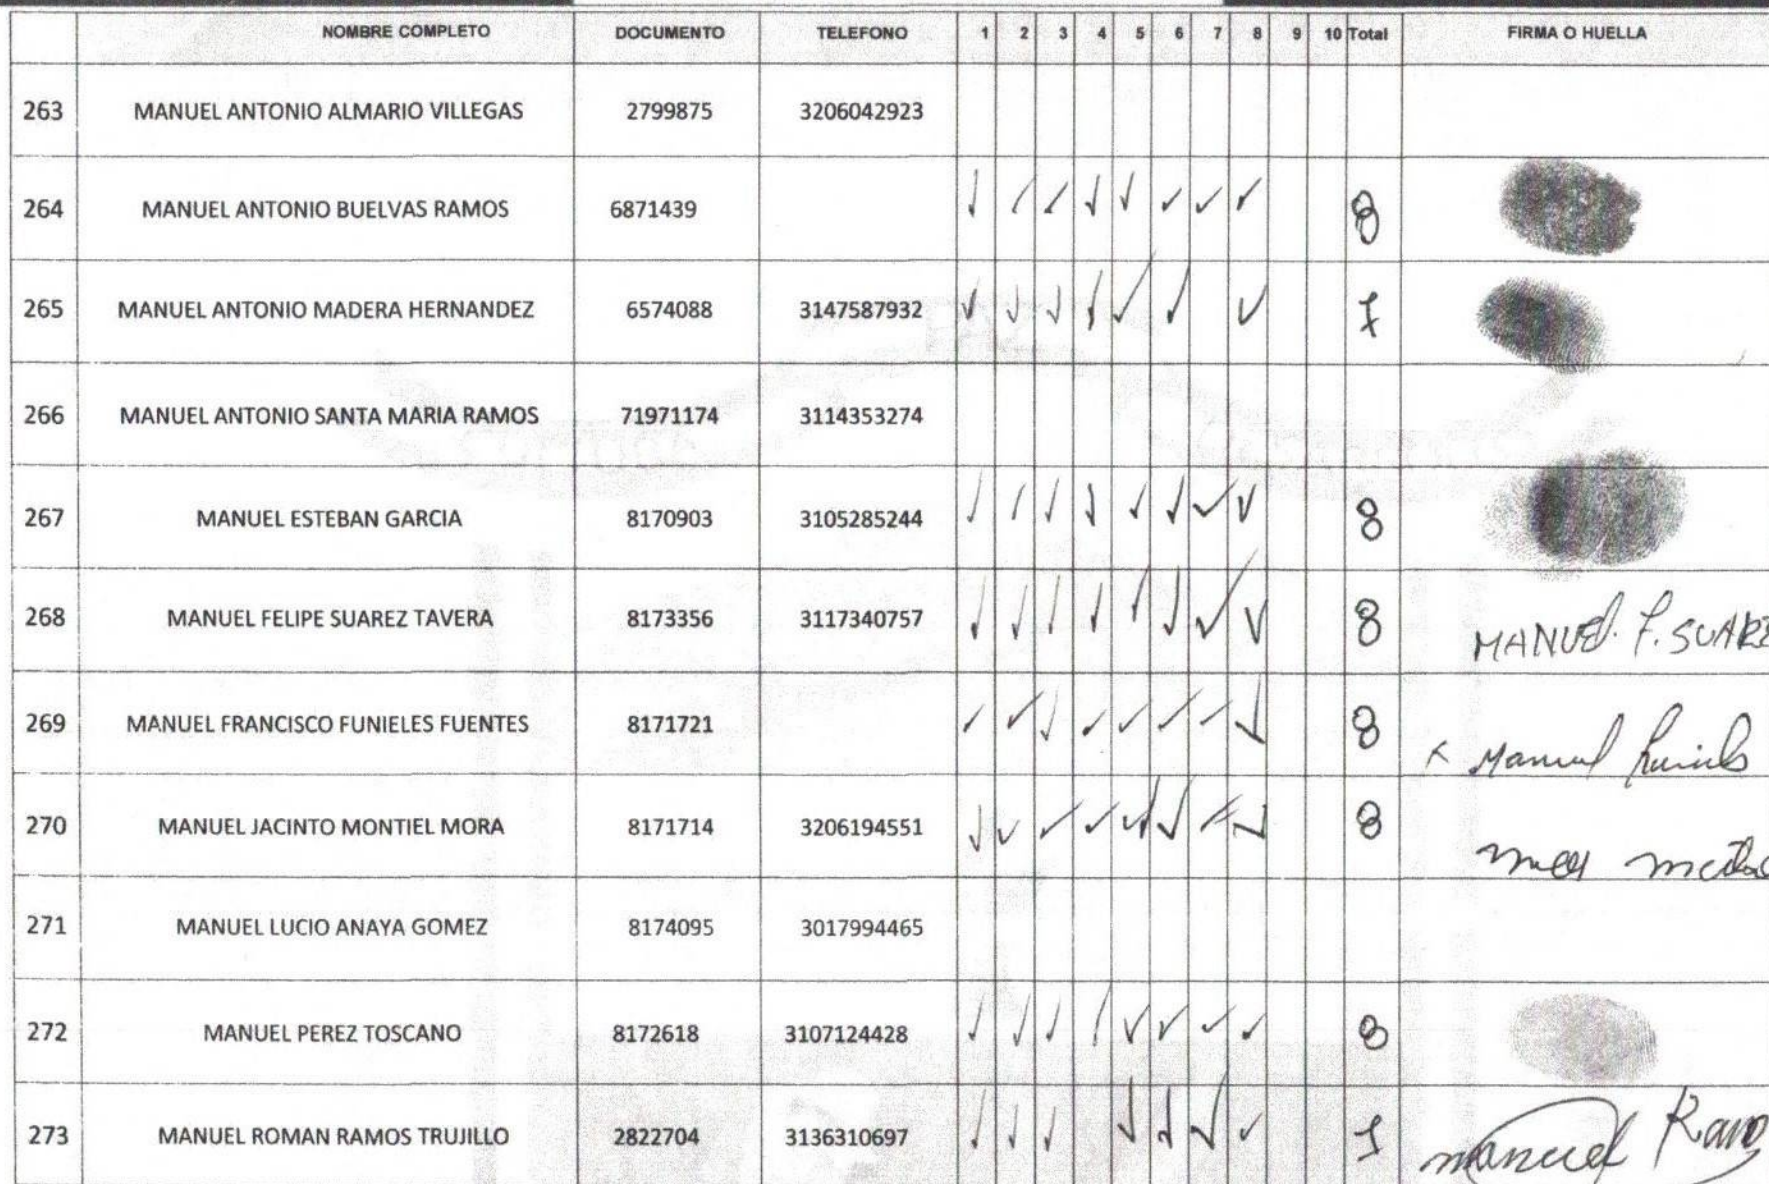 NOMBRE COMPLETO DOCUMENTO TELEFONO 1 2 3 4 5 6 7 8 9 10 Total FIRMA O HUELLA
263 MANUEL ANTONIO ALMARIO VILLEGAS 2799875 3206042923
264 MANUEL ANTONIO BUELVAS RAMOS 6871439 8
265 MANUEL ANTONIO MADERA HERNANDEZ 6574088 3147587932 7
266 MANUEL ANTONIO SANTA MARIA RAMOS 71971174 3114353274
267 MANUEL ESTEBAN GARCIA 8170903 3105285244 8
268 MANUEL FELIPE SUAREZ TAVERA 8173356 3117340757 8 MANUEL F. SUARE
269 MANUEL FRANCISCO FUNIELES FUENTES 8171721 8 x Manuel
270 MANUEL JACINTO MONTIEL MORA 8171714 3206194551 8
271 MANUEL LUCIO ANAYA GOMEZ 8174095 3017994465
272 MANUEL PEREZ TOSCANO 8172618 3107124428 8
273 MANUEL ROMAN RAMOS TRUJILLO 2822704 3136310697 manuel Ramo